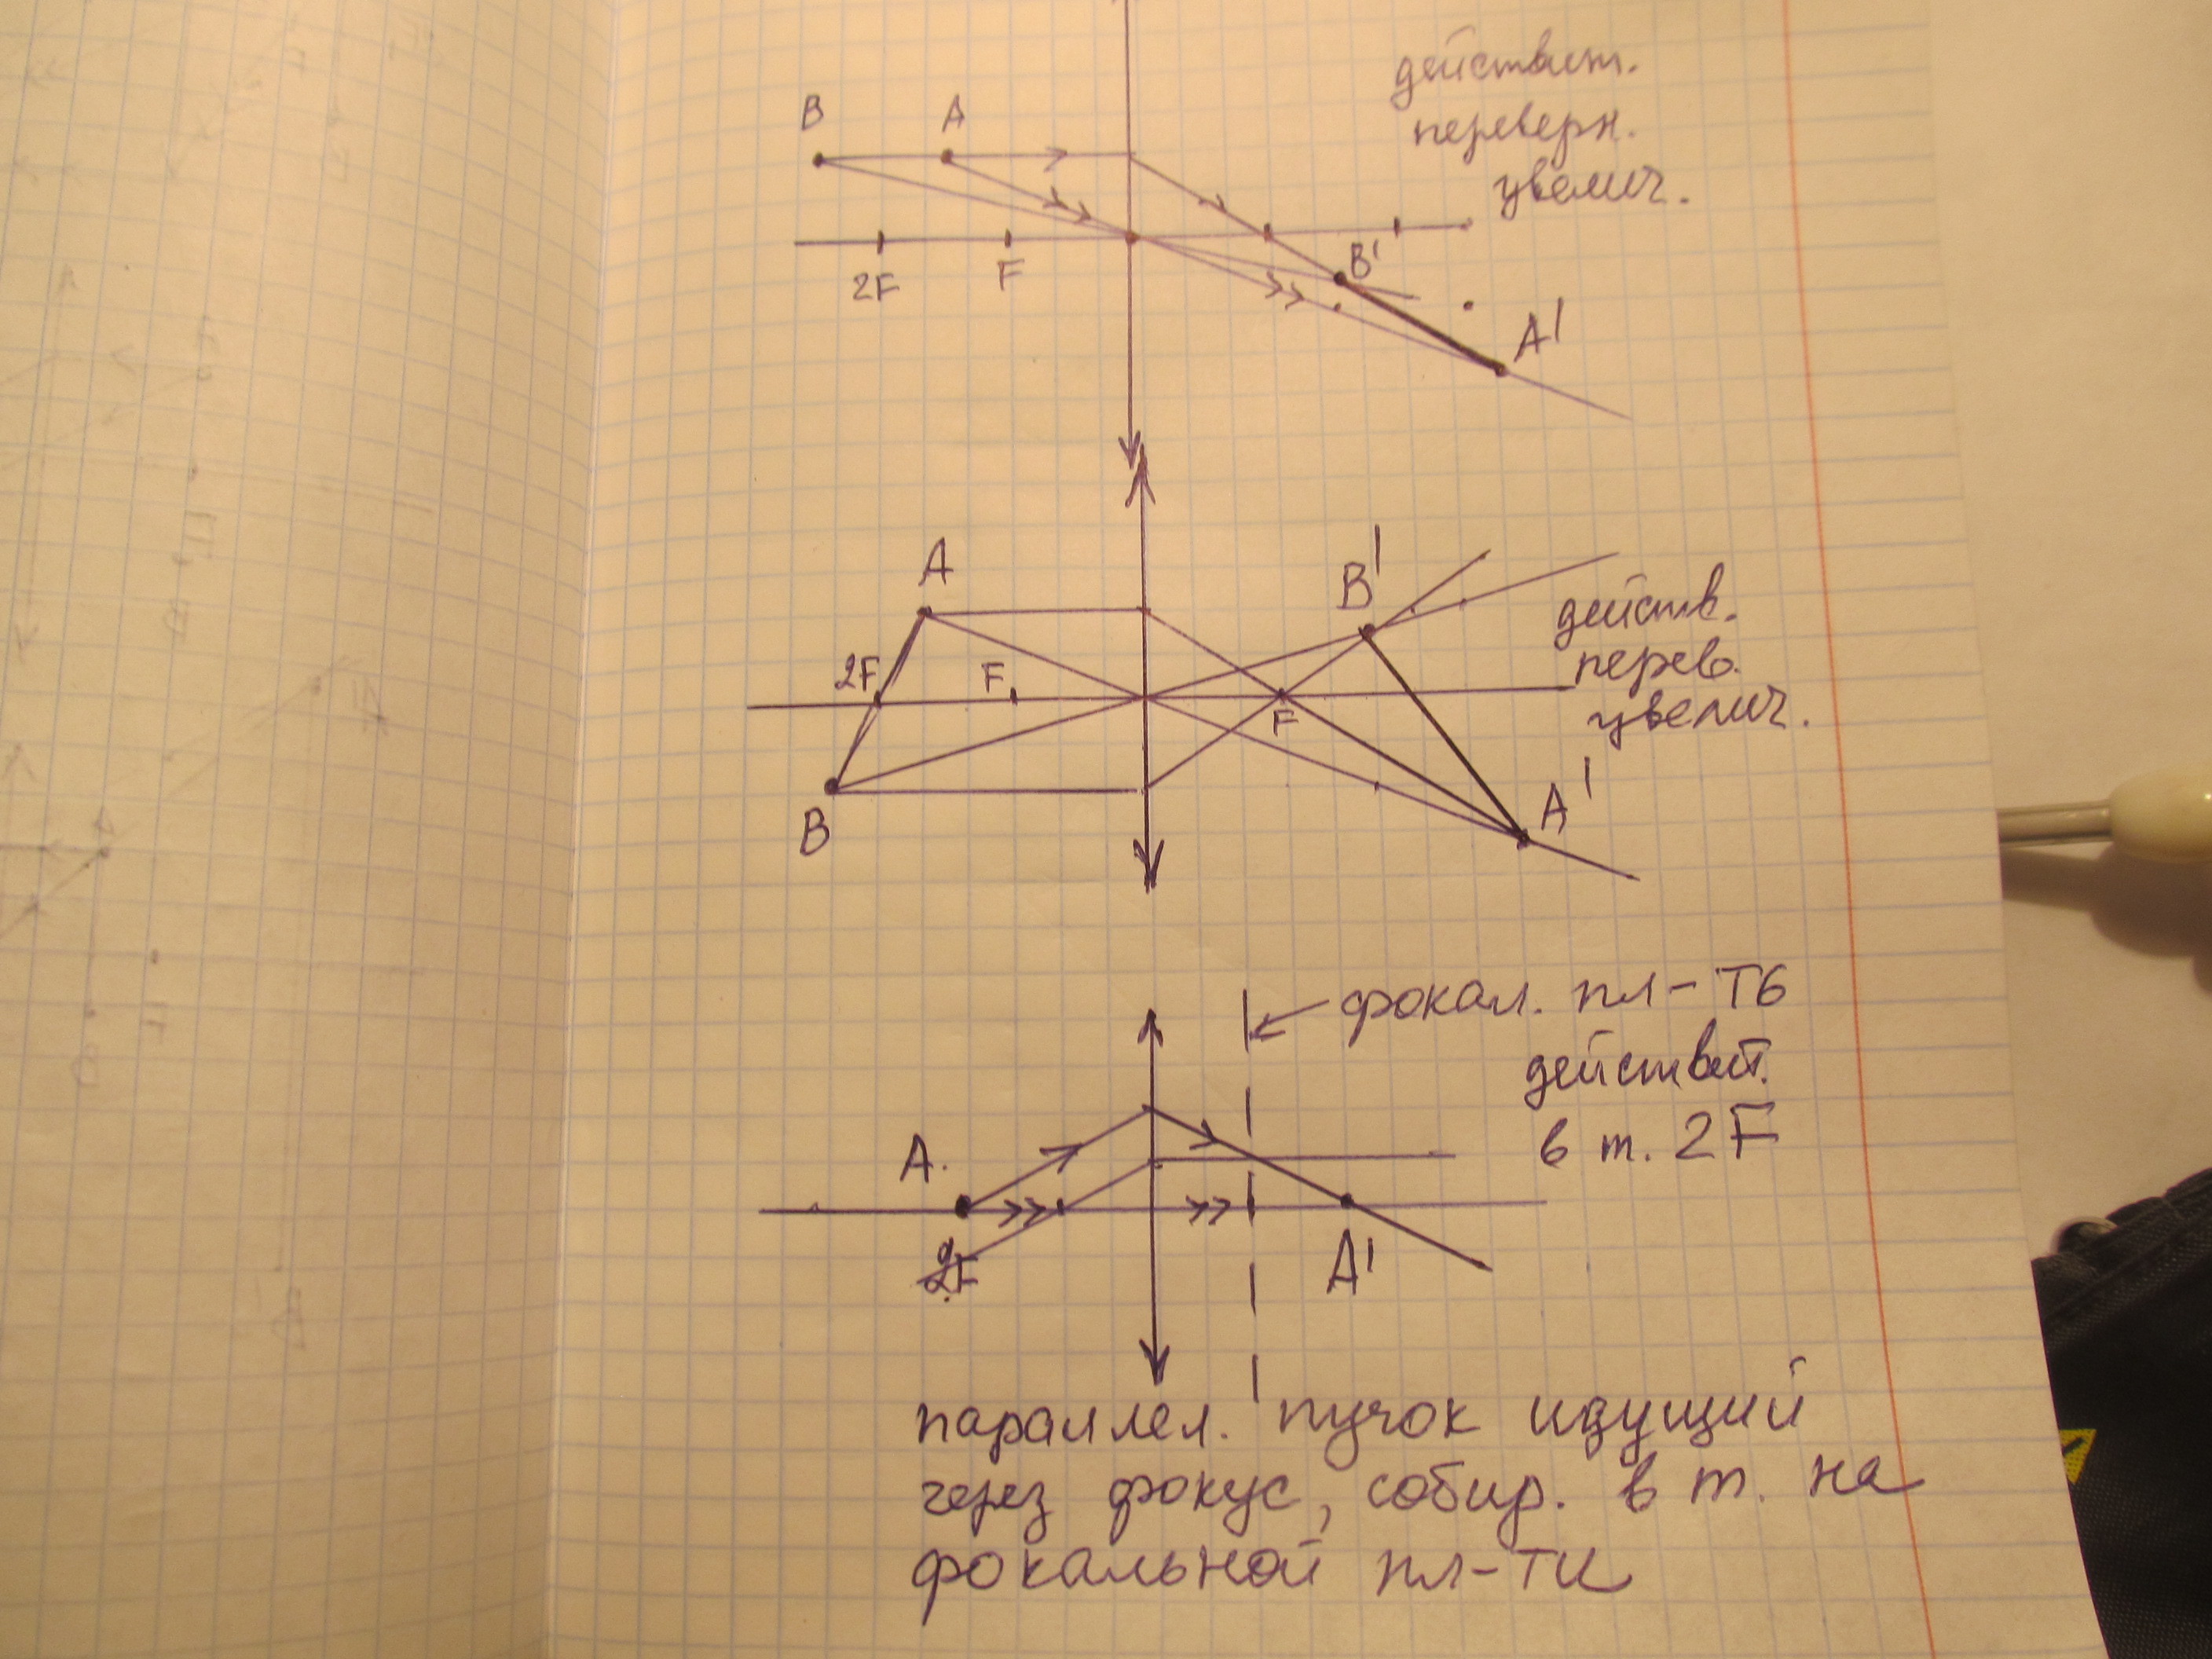 действит.
переверн.
увелич.
B A
2F F
B'
A'
A
B'
действ.
перев.
увелич.
2F F
F
B
A'
фокал. пл-ть
действит.
в т. 2F
A.
2F
A'
параллел. пучок идущий
через фокус, собир. в т. на
фокальной пл-ти